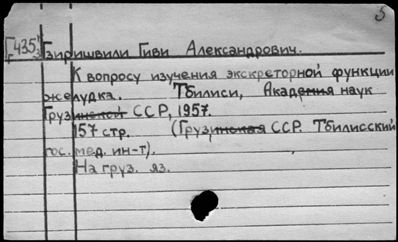 5
Г435 Гзиришвили Гиви Александрович.
К вопросу изучения экскреторной функции
желудка. Тбилиси, Академия наук
Грузинской ССР, 1957.
157 стр. (Грузинская ССР. Тбилисский
гос. мед. ин-т).
На груз. яз.